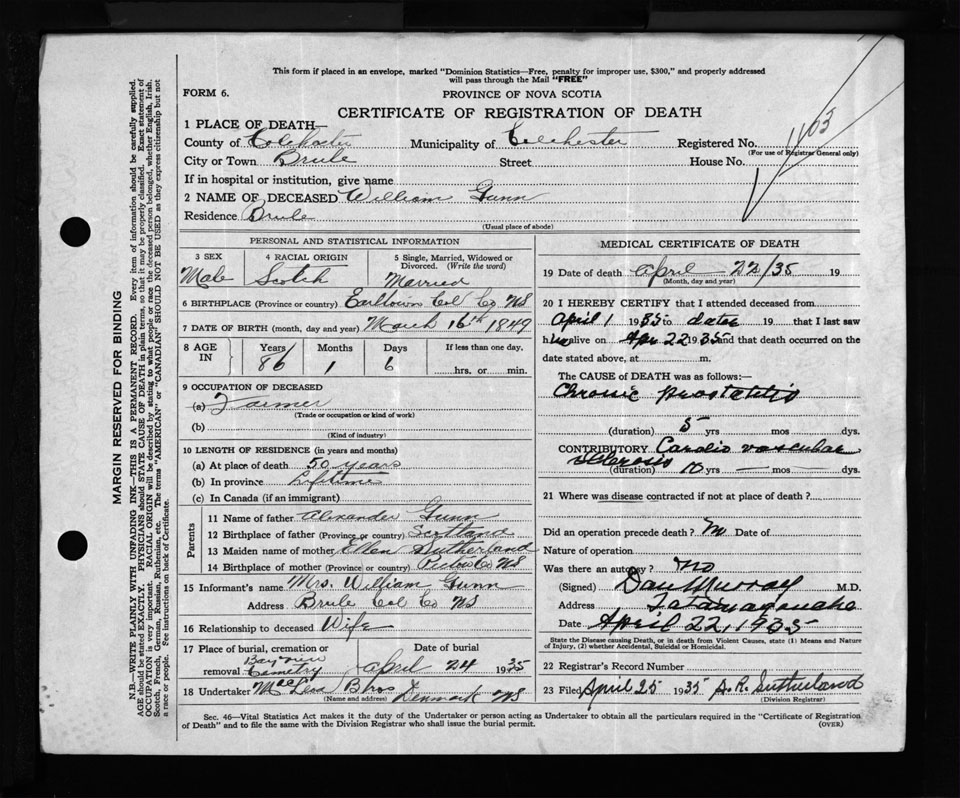 This form if placed in an envelope, marked "Dominion Statistics—Free, penalty for improper use, $300," and properly addressed
will pass through the Mail "FREE"
FORM 6.
PROVINCE OF NOVA SCOTIA
CERTIFICATE OF REGISTRATION OF DEATH
1 PLACE OF DEATH—
County of Colchester Municipality of Colchester Registered No. 1103
(For use of Registrar General only)
City or Town Brule Street House No.
If in hospital or institution, give name
2 NAME OF DECEASED William Gunn
Residence Brule
(Usual place of abode)
PERSONAL AND STATISTICAL INFORMATION
3 SEX 4 RACIAL ORIGIN 5 Single, Married, Widowed or
Divorced. (Write the word)
Male Scotch Married
6 BIRTHPLACE (Province or country) Earltown Col Co NS
7 DATE OF BIRTH (month, day and year) March 16th 1849
8 AGE IN Years Months Days If less than one day,
86 1 6 hrs. or min.
9 OCCUPATION OF DECEASED
(a) Farmer
(Trade or occupation or kind of work)
(b)
(Kind of industry)
10 LENGTH OF RESIDENCE (in years and months)
(a) At place of death 50 years
(b) In province Lifetime
(c) In Canada (if an immigrant)
Parents
11 Name of father Alexander Gunn
12 Birthplace of father (Province or country) Scotland
13 Maiden name of mother Ellen Sutherland
14 Birthplace of mother (Province or country) Pictou Co NS
15 Informant's name Mrs. William Gunn
Address Brule Col Co NS
16 Relationship to deceased Wife
17 Place of burial, cremation or Date of burial
removal Bayview Cemetry April 24 1935
18 Undertaker Bros Denmark NS
(Name and address)
MEDICAL CERTIFICATE OF DEATH
19 Date of death April 22/35 19
(Month, day and year)
20 I HEREBY CERTIFY that I attended deceased from
April 1 1935 to date 19 that I last saw
him alive on Apr 22 1935 and that death occurred on the
date stated above, at m.
The CAUSE of DEATH was as follows:—
Chronic prostatitis
(duration) 5 yrs mos dys.
CONTRIBUTORY Cardio vascular
sclerosis 10 yrs — mos — dys.
21 Where was disease contracted if not at place of death?
Did an operation precede death? No Date of
Nature of operation
Was there an autopsy? No
(Signed) Dan Murray M.D.
Address Tatamagouche
Date April 22, 1935
State the Disease causing Death, or in death from Violent Causes, state (1) Means and Nature
of Injury, (2) whether Accidental, Suicidal or Homicidal.
22 Registrar's Record Number
23 Filed April 25 1935 A.R. Sutherland
(Division Registrar)
Sec. 46—Vital Statistics Act makes it the duty of the Undertaker or person acting as Undertaker to obtain all the particulars required in the "Certificate of Registration
of Death" and to file the same with the Division Registrar who shall issue the burial permit. (OVER)
MARGIN RESERVED FOR BINDING
N.B.—WRITE PLAINLY WITH UNFADING INK—THIS IS A PERMANENT RECORD. Every item of information should be carefully supplied.
AGE should be stated EXACTLY. PHYSICIANS should STATE CAUSE OF DEATH in plain terms, so that it may be properly classified. Exact statement of
OCCUPATION is very important. RACIAL ORIGIN will be described by stating to what people or race the deceased person belonged, whether English, Irish,
Scotch, French, German, Russian, Ruthenian, etc. The terms "AMERICAN" or "CANADIAN" SHOULD NOT BE USED as they express citizenship but not
a race or people. See instructions on back of Certificate.